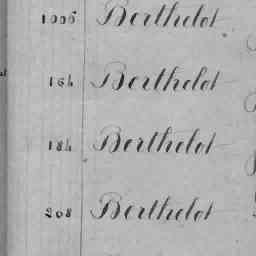 1006 Berthelot
164 Berthelot
184 Berthelot
208 Berthelot